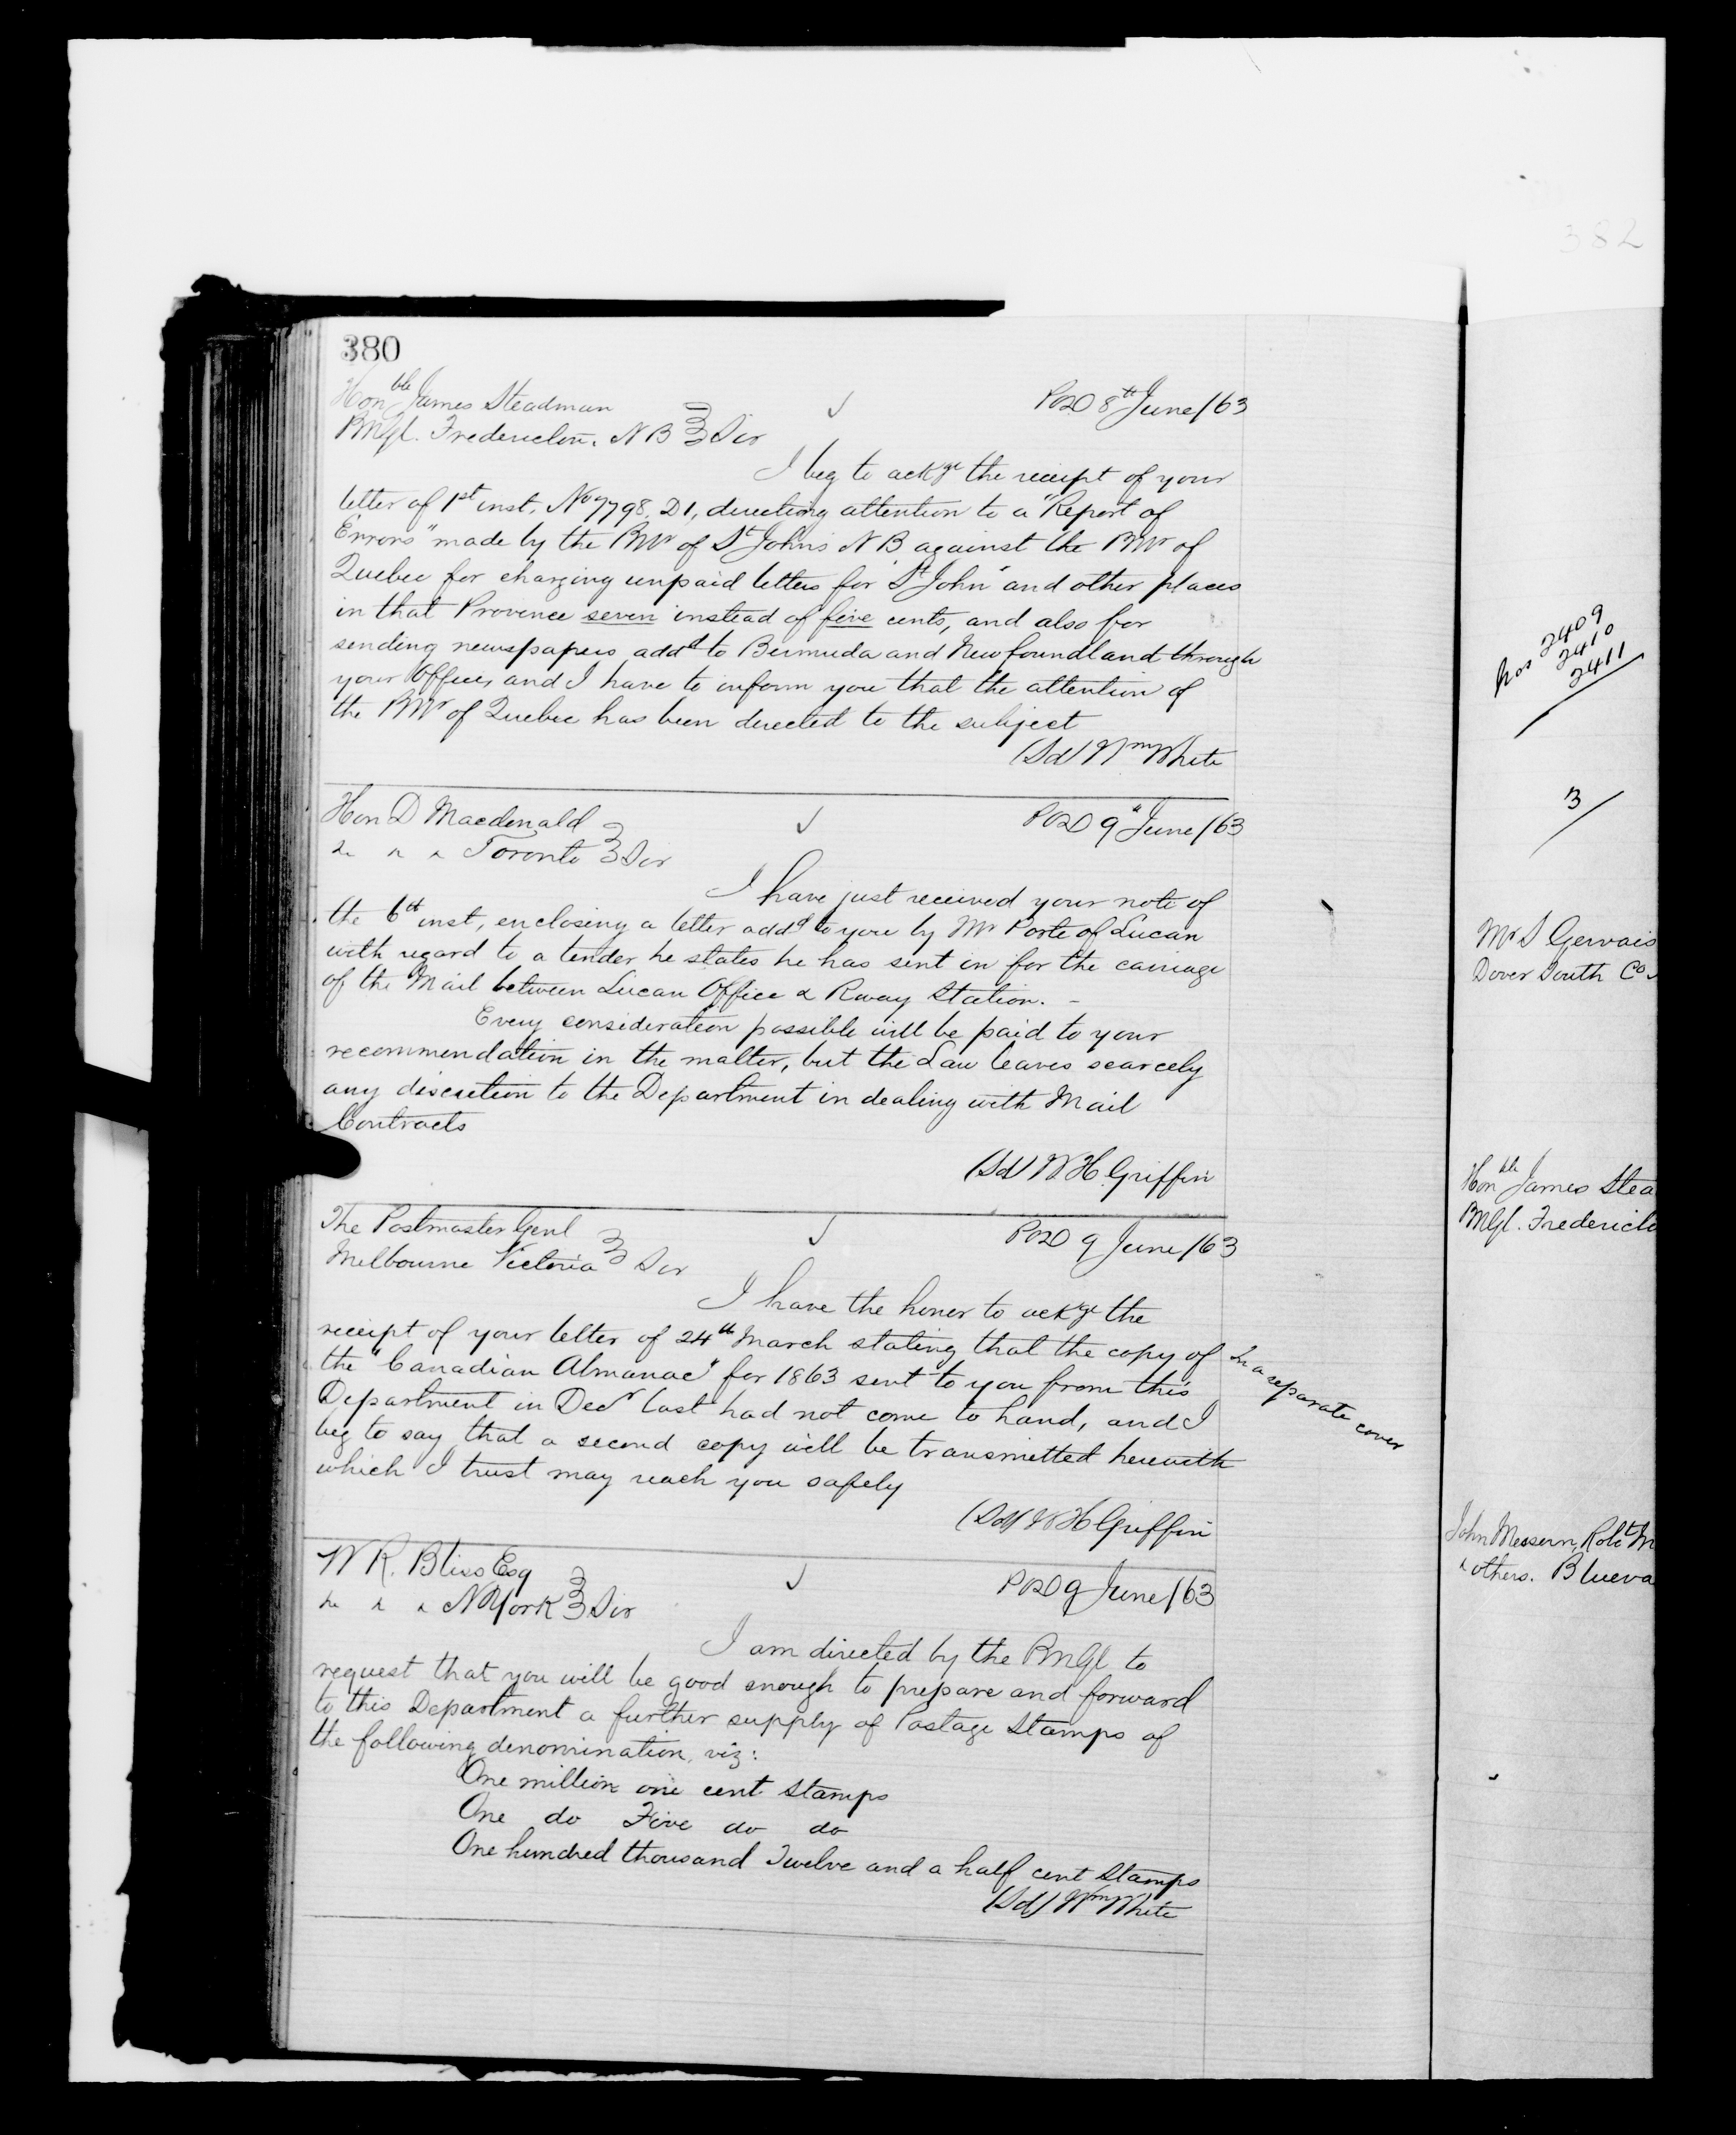 382
380
Honble James Steadman POD 8th June/63
PMGl. Fredericton. N B Sir
I beg to ackge the receipt of your
letter of 1st inst. No 7798. D1, directing attention to a "Report of
Errors" made by the PMr of St Johns N B against the PMr of
Quebec for charging unpaid letters for "St John" and other places
in that Province seven instead of five cents, and also for
sending newspapers addd to Bermuda and Newfoundland through
your Office, and I have to inform you that the attention of
the PMr of Quebec has been directed to the subject
(Sd) Wm White
Hon D Macdonald POD 9" June/63
Toronto Sir
I have just received your note of
the 6th inst, enclosing a letter addd to you by Mr Porte of Lucan
with regard to a tender he states he has sent in for the carriage
of the Mail between Lucan Office & Rway Station. -
Every consideration possible will be paid to your
recommendation in the matter, but the Law leaves scarcely
any discretion to the Department in dealing with Mail
Contracts
(Sd) W. H. Griffin
The Postmaster Genl POD 9 June/63
Melbourne Victoria Sir
I have the honor to ackge the
receipt of your letter of 24th March stating that the copy of
the "Canadian Almanac" for 1863 sent to you from this
Department in Decr last had not come to hand, and I
beg to say that a second copy will be transmitted herewith
which I trust may reach you safely
In a separate cover
(Sd) W H Griffin
W R. Bliss Esq POD 9 June/63
N York Sir
I am directed by the PMGl to
request that you will be good enough to prepare and forward
to this Department a further supply of Postage Stamps of
the following denomination, viz:
One million one cent Stamps
One do Five do do
One hundred thousand Twelve and a half cent Stamps
(Sd) Wm White
Nos 2409
2410
2411
3
Mr S Gervais
Dover South Co.
Honble James Stea
PMGl. Fredericto
John Messern, Robt M
& others. Blueva